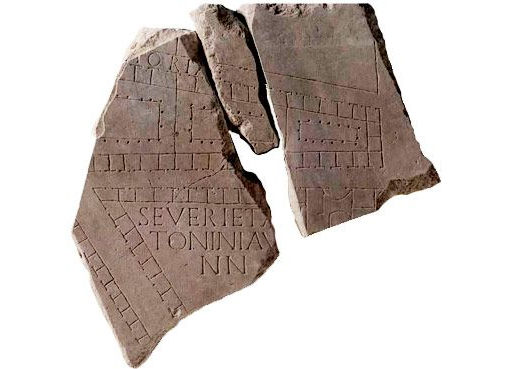 ORIA
SEVERI ET A
TONINI AV
NN